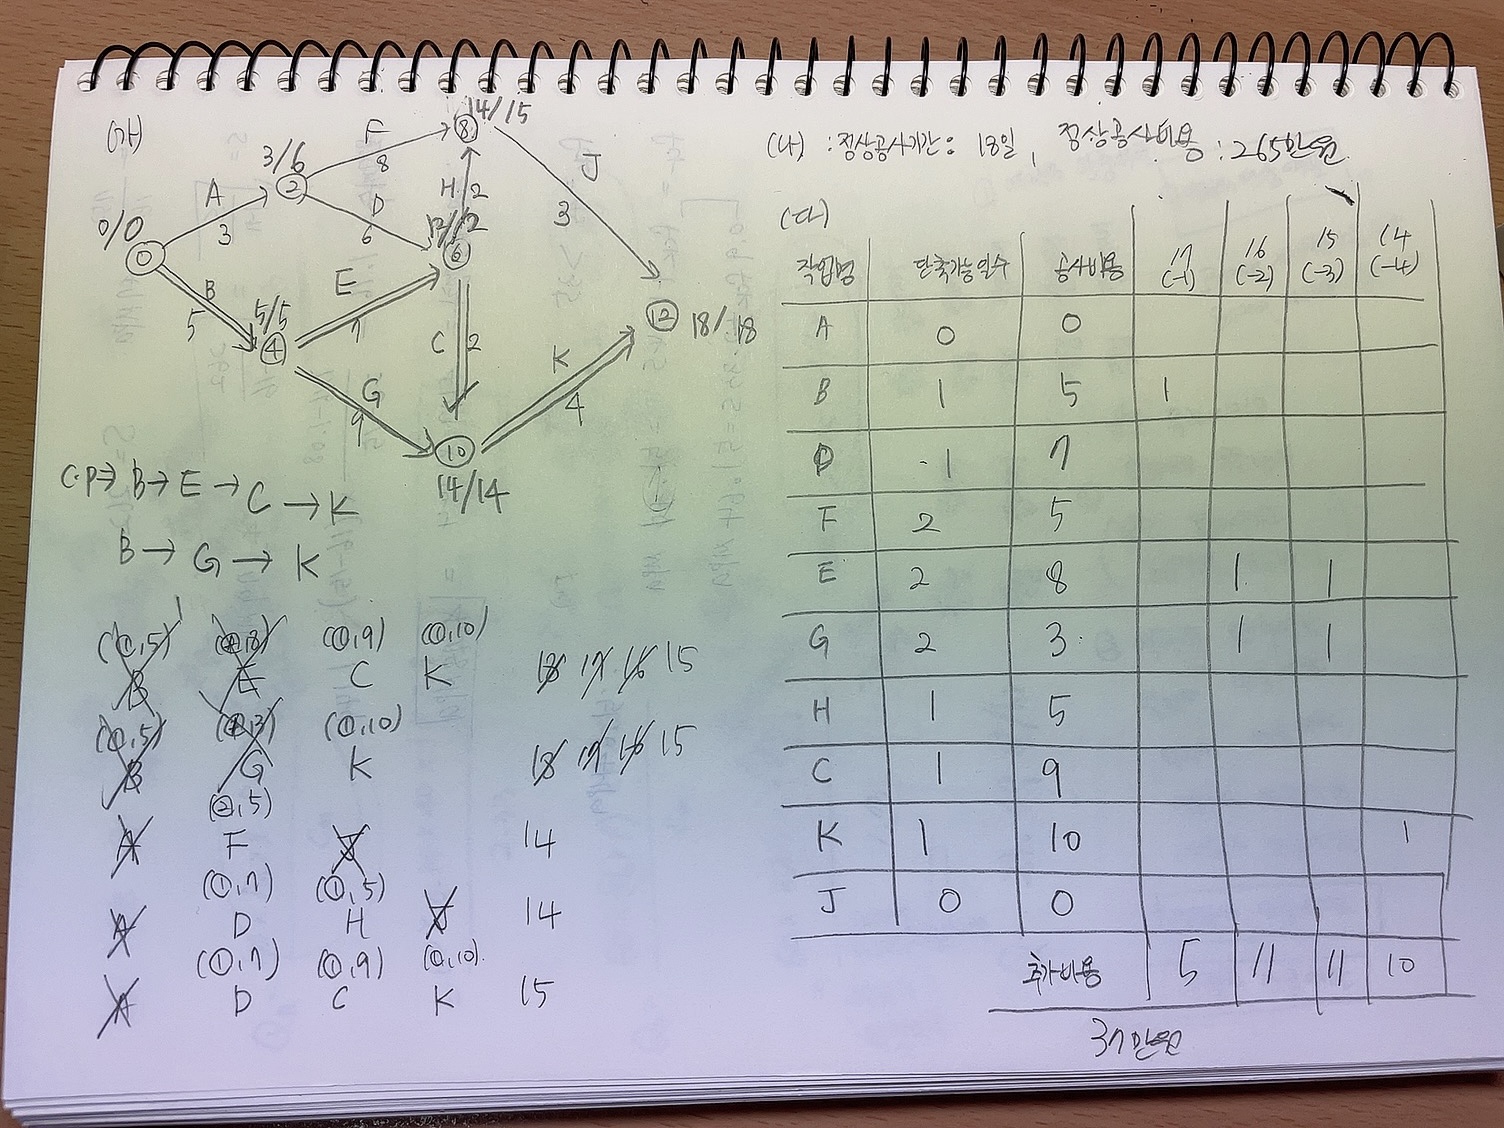 (가)
14/15
F
8
8
3/6
2
A
3
D
6
H 2
J
3
0/0
0
12/12
6
B
5
E
7
5/5
4
C 2
12
18/18
G
9
K
4
10
14/14
C.P→ B→ E → C → K
B → G → K
(①,5) (②,8) (①,9) (①,10)
B E C K 18 17 16 15
(①,5) (②,3) (①,10)
B G K 18 17 16 15
(②,5)
A F J 14
(①,7) (①,5)
A D H J 14
(①,7) (①,9) (①,10)
A D C K 15
(나) : 정상공사기간 : 18일, 정상공사비용 : 265만원
(다)
작업명 단축가능일수 공사비용 17 (-1) 16 (-2) 15 (-3) 14 (-4)
A 0 0
B 1 5 1
D 1 7
F 2 5
E 2 8 1 1
G 2 3 1 1
H 1 5
C 1 9
K 1 10 1
J 0 0
추가비용 5 11 11 10
37만원